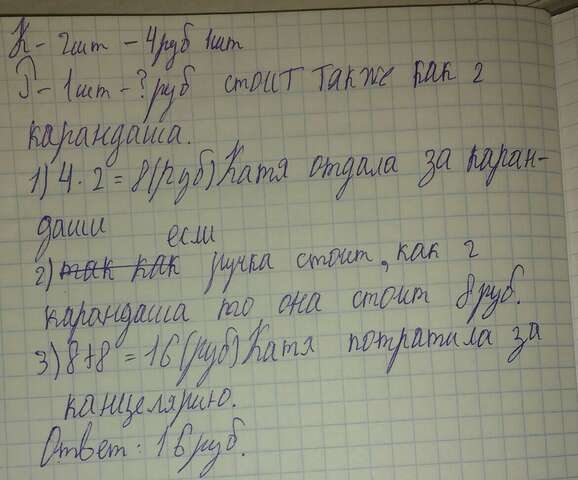 К - 2шт - 4руб 1шт
Р - 1шт - ? руб стоит также как 2
карандаша.
1) 4 · 2 = 8 (руб) Катя отдала за каран-
даши если
2) так как ручка стоит, как 2
карандаша то она стоит 8 руб.
3) 8+8 = 16 (руб) Катя потратила за
канцелярию.
Ответ: 16 руб.